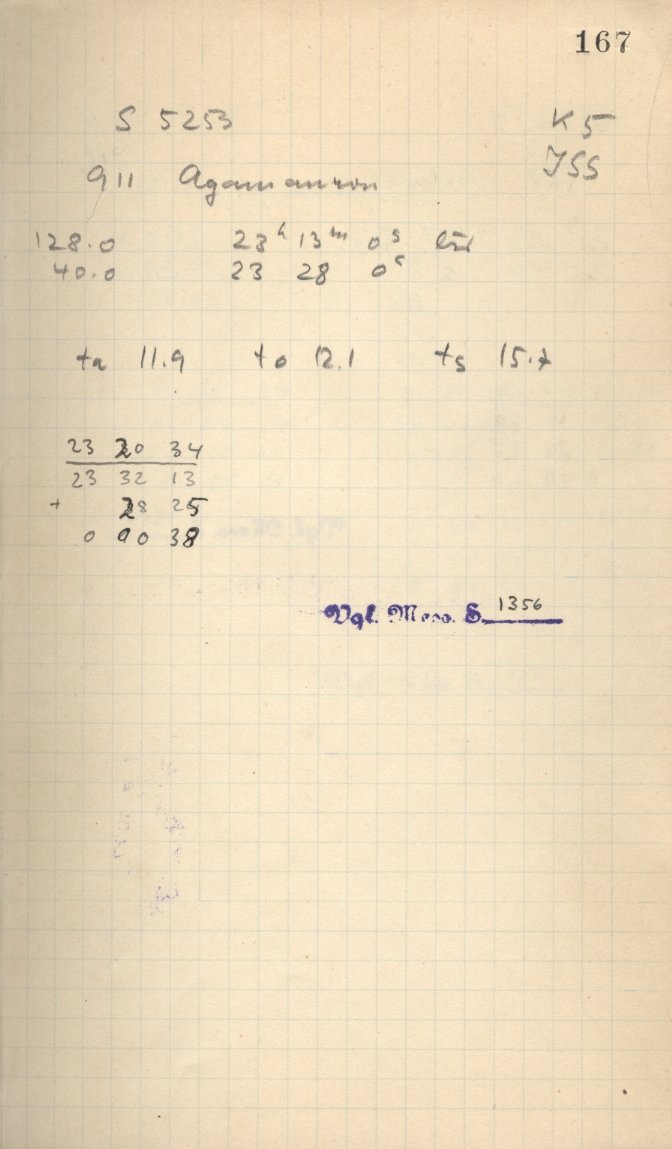 167
S 5253 K 5
JSS
911 Agamemnon
128.0 23h 13m 0s
40.0 23 28 0s
ta 11.9 to 12.1 ts 15.7
23 20 34
23 32 13
+ 28 25
0 00 38
Vgl. Mess. S. 1356